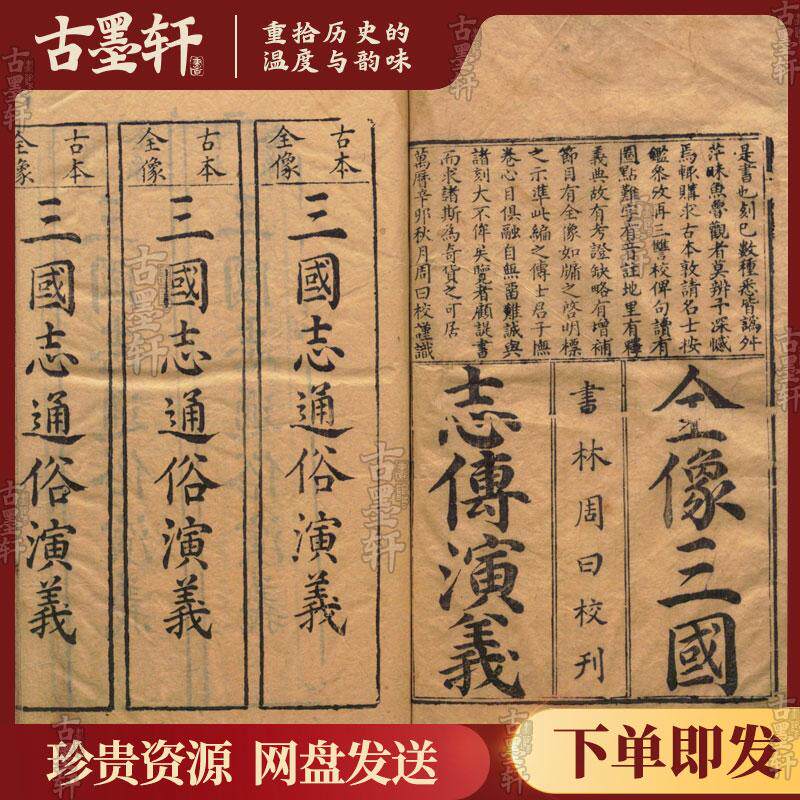 古墨轩
重拾历史的
温度与韵味
是書也刻已數種悉皆譌舛
茫昧魚魯觀者莫辨予深憾
焉輒購求古本敦請名士按
鑑叅攷再三讐校俾句讀有
圈點難字有音註地里有釋
義典故有考證缺略有增補
節目有全像如牖之啓明標
之示準此編之傳士君子憮
卷心目俱融自無留難誠與
諸刻大不侔矣覽者顧諟書
而求諸斯為奇貨之可居
萬曆辛卯秋月周曰校謹識
全像三國
書林周曰校刊
志傳演義
古本
全像
三國志通俗演義
古本
全像
三國志通俗演義
古本
全像
三國志通俗演義
珍贵资源 网盘发送
下单即发